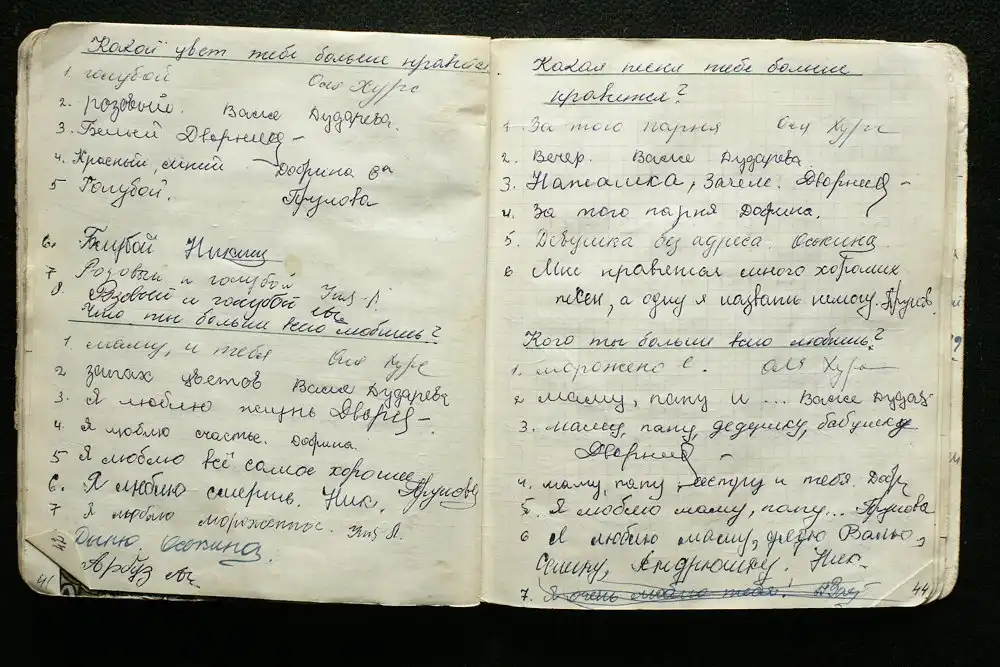 Какой цвет тебе больше нравится
1. голубой Оля Хурс
2. розовый. Валя Дударева.
3. Белый Дворниц
4. Красный, синий Дофина
5 Голубой. Прулова
6. Голубой Никиш
7 Розовый и голубой
8. Розовый и голубой
Что ты больше всего любишь?
1. маму, и тебя Оля Хурс
2 запах цветов Валя Дударева
3. Я люблю жизнь Дворн
4. Я люблю счастье. Дофина.
5 Я люблю всё самое хорошее Прулова
6. Я люблю смерть. Ник.
7 Я люблю мороженное.
Дыню Оськина.
Арбуз
41
42
Какая песня тебе больше
нравится?
1 За того парня Оля Хурс
2. Вечер. Валя Дударева
3. Наташка, Зачем. Дворниц
4. За того парня Дофина.
5. Девушка без адреса. Оськина
6 Мне нравятся много хороших
песен, а одну я назвать немогу. Прулов.
Кого ты больше всего любишь?
1. морожено е. Оля Хурс
2 маму, папу и ... Валя Дудар
3. маму, папу, дедушку, бабушку
Дворниц
4. маму, папу, сестру и тебя. Доф
5. Я люблю маму, папу... Прулова
6 Я люблю маму, дядю Валю,
Андрюшку! Ник.
7. Я очень люблю тебя!
44